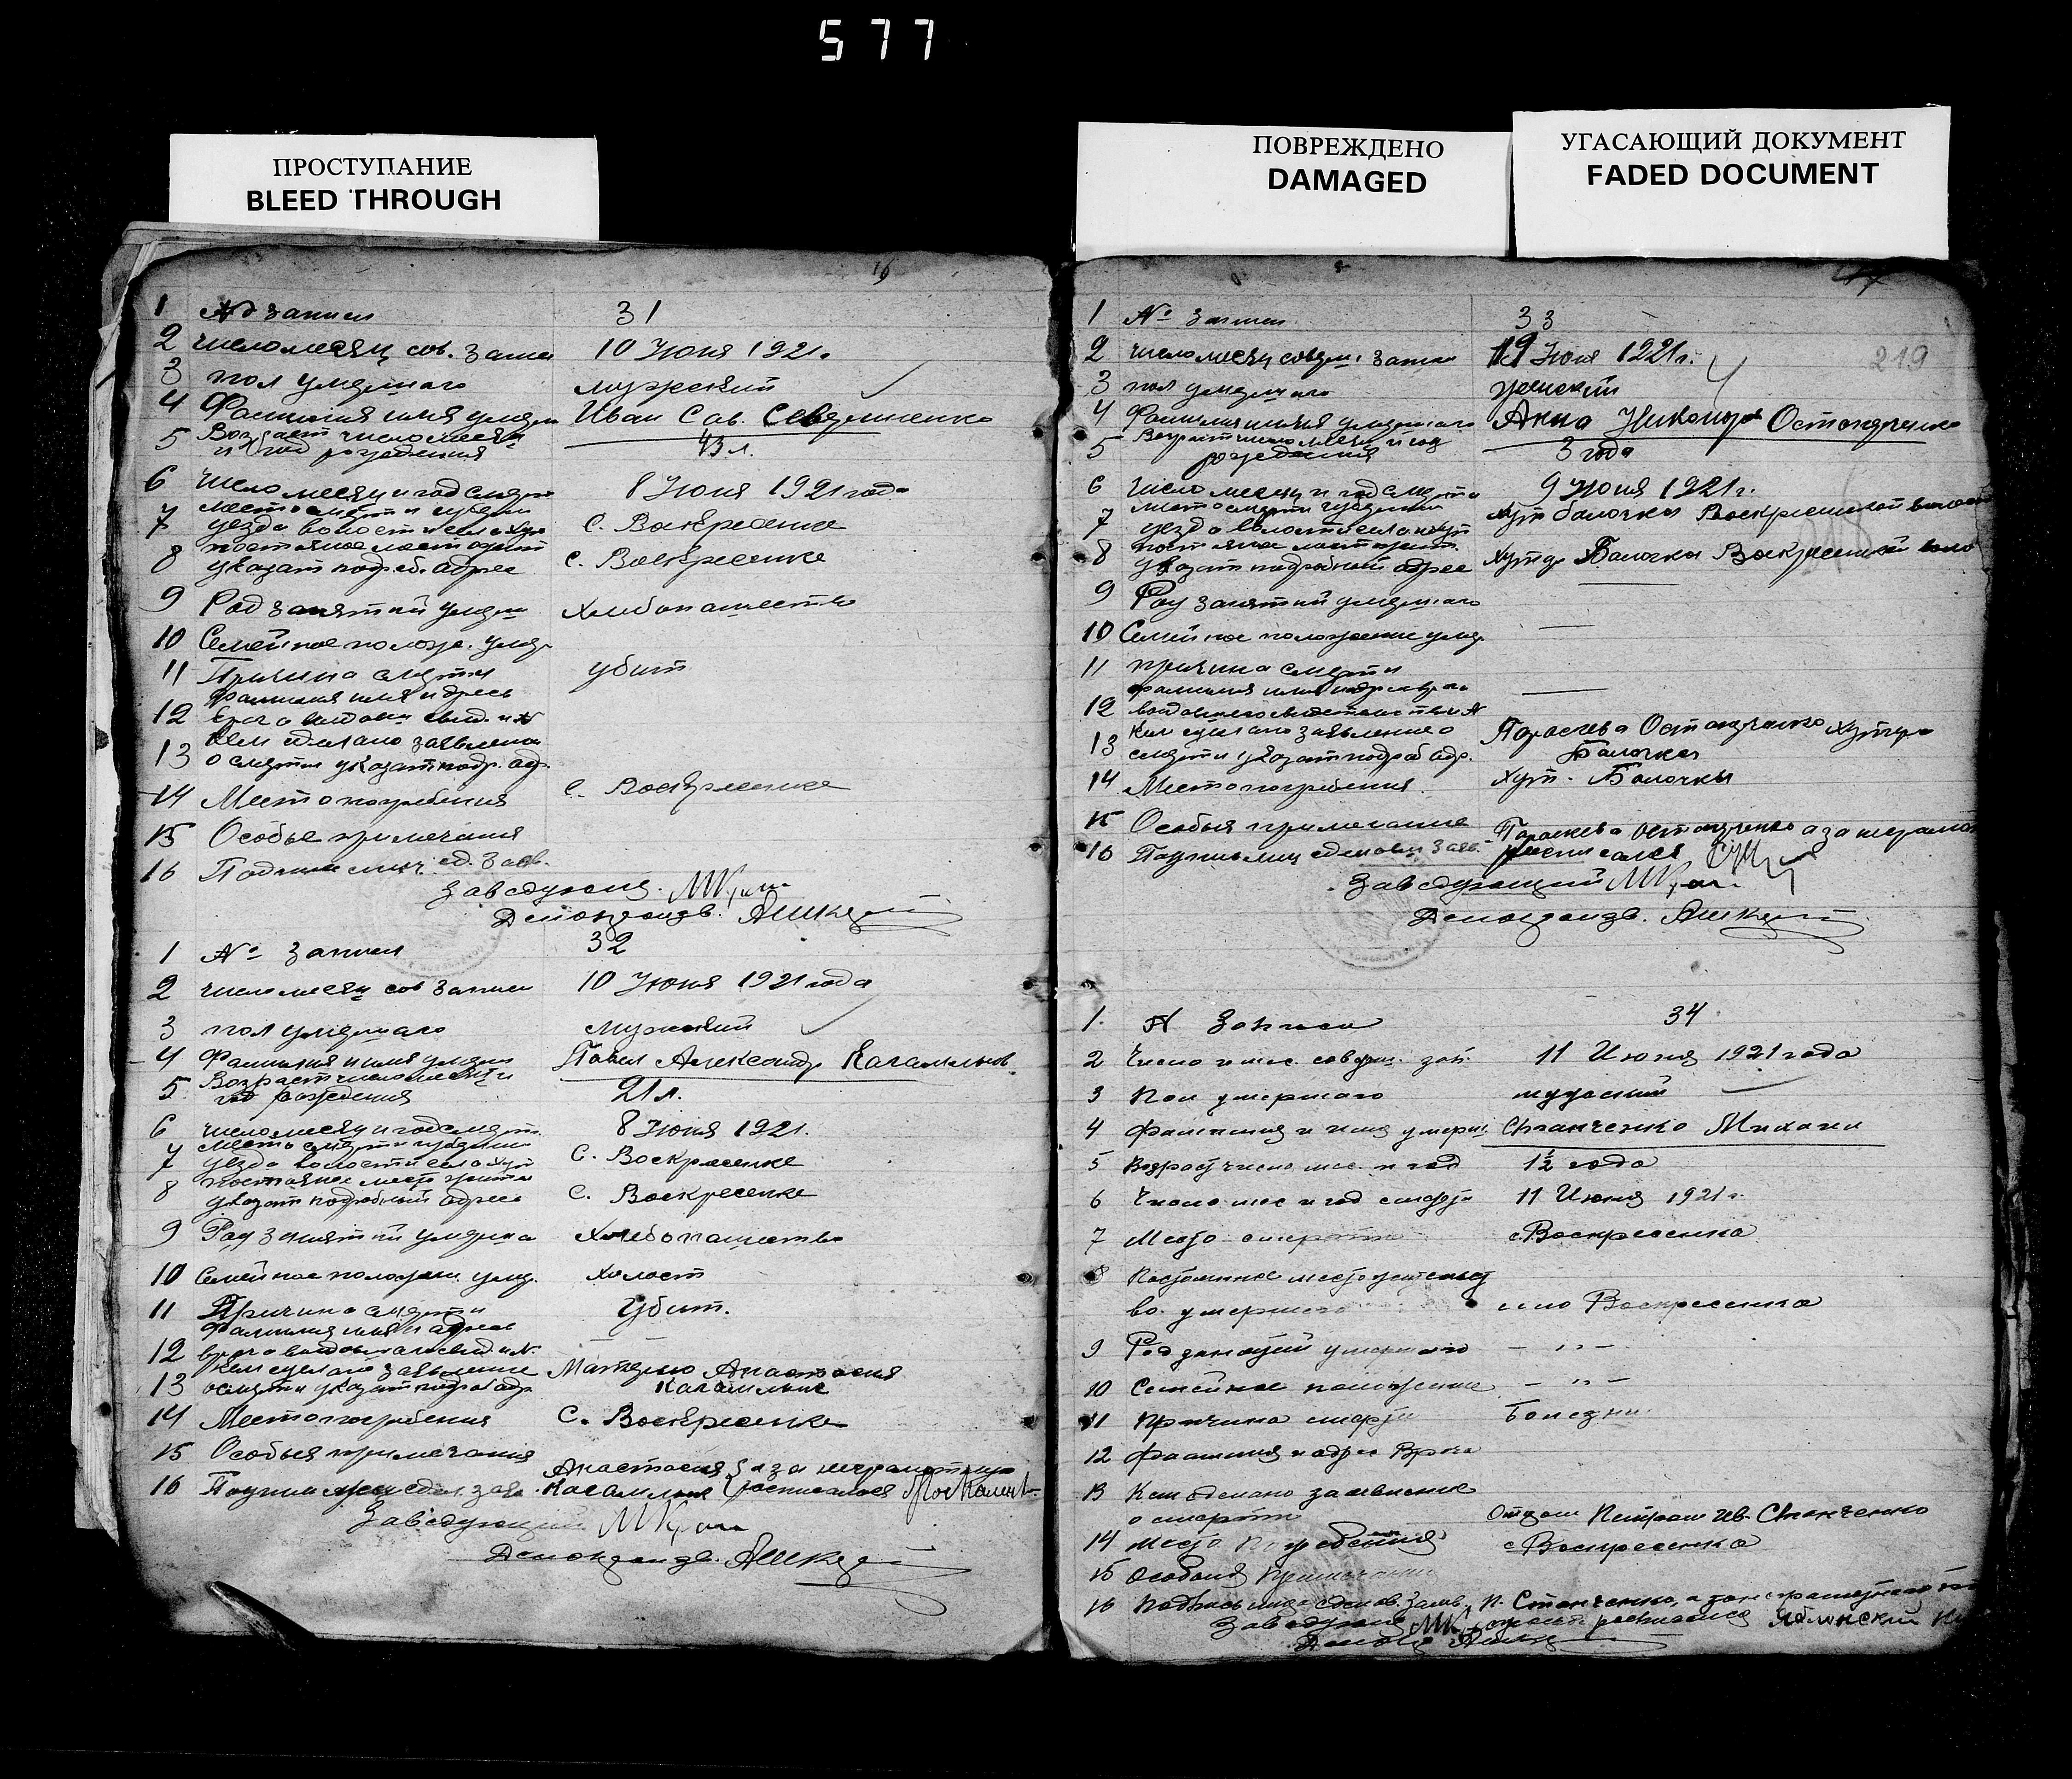 577
ПРОСТУПАНИЕ
BLEED THROUGH
ПОВРЕЖДЕНО
DAMAGED
УГАСАЮЩИЙ ДОКУМЕНТ
FADED DOCUMENT
16
1 № записи 31
2 число месяц сов. записи 10 Июня 1921.
3 пол умершаго мужский
4 Фамилия имя умерш Иван Сав.
5 Возраст число месяц
и год рождения 43 л.
6 Число месяц и год смерти 8 Июня 1921 года
место смерти губернии
7 уезда волости села хут с. Воскресенка
постоянное место жит
8 указат подроб. адрес с. Воскресенке
9 Род занятий умерш Хлибопашество
10 Семейное полож. умер
11 Причина смерти убит
фамилия имя адресь
12 врача выдавш свид. и №
Кем сделано заявление
13 о смерти указат подр. адр.
14 Место погребения с. Воскресенке
15 Особые примечания
16 Подписи лиц сд. заяв.
Заведующ.
Делопроизв.
1 № записи 32
2 число месяц сов записи 10 Июня 1921 года
3 пол умершаго мужский
4 Фамилия и имя умерш Павел Александр
5 Возраст число месяц и
год рождения 21 л.
6 число месяц и год смерт. 8 Июня 1921.
место смерти губернии
7 уезда волости села хут с. Воскресенке
постоянное место жит
8 указат подробный адрес с. Воскресенке
9 Род занятий умерша Хлебопашество
10 Семейное положение умер. холост
11 Причина смерти Убит.
фамилия имя и адрес
12 врача выдавшаго свид. и №.
Кем сделано заявление Матерью Анастасия
13 о смерти указат подроб адр
14 Место погребения с. Воскресенке
15 Особыя примечания
Анастасия а за неграмотную
16 Подписи лиц сдел. заяв. росписался
Заведующий
Делопроизв.
219
1 № записи 33
2 число месяц соверш записи 19 Июня 1921 г.
3 пол умершаго женский
4 Фамилия имя умершаго Анна Никонор Остапченко
5 Возраст число месяц и год
рождения 3 года
6 Число месяц и год смерти 9 Июня 1921 г.
место смерти губернии
7 уезда волости села хут хут Балочки Воскресенской волост
постоянное место жит.
8 указат подробный адрес Хутор Балочки Воскресенской воло
9 Род занятий умершаго —
10 Семейное положение умер. —
11 причина смерти
фамилия имя адрес врача
12 выдавшего свидетельство № —
13 Кем сделано заявление о Параскева Остапченко хутора
смерти указат подроб адр. Балочки
14 Место погребения. хут. Балочки
15 Особыя примечание
Параскева Остапченко а за неграмот
16 Подпись лиц сделавш заяв. росписался
Заведующий
Делопроизв.
1. № Записи 34
2 Число и мес. соверш. зап. 11 Июня 1921 года
3 Пол умершаго мужский
4 Фамилия и имя умерш. Степанченко Михаил
5 Возраст число мес. и год 1½ года
6 Число мес и год смерти 11 Июня 1921 г.
7 Место смерти с. Воскресенка
8 Постоянное место жительст
во. умершего село Воскресенка
9 Род занятий умершаго — „ —
10 Семейное положение — „ —
11 Причина смерти Болезни
12 Фамилия и адрес Врача
13 Кем сделано заявление
о смерти Отцом Петром Ив. Степанченко
14 Место погребения с. Воскресенка
15 Особыя примечания
16 Подпись лица сделав. заяв.
Заведующ росписался Яблонский